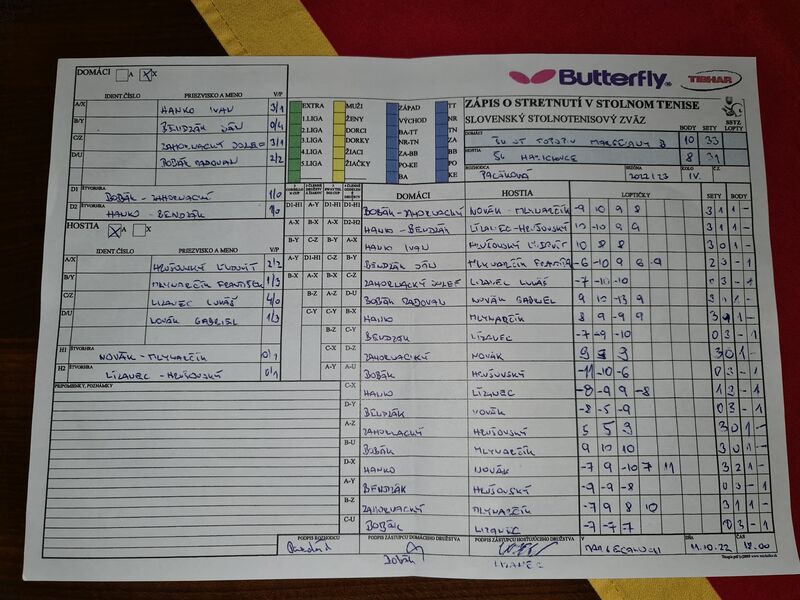 DOMÁCI A X
IDENT.ČÍSLO PRIEZVISKO A MENO V/P
A/X HANKO IVAN 3/1
B/Y BENDZÁK JÁN 0/4
C/Z ZAHORNACKÝ JOZEF 3/1
D/U BOBÁK RADOVAN 2/2
D1 ŠTVORHRA BOBÁK - ZAHORNACKÝ 1/0
D2 HANKO - BENDZÁK 1/0
HOSTIA A X
IDENT.ČÍSLO PRIEZVISKO A MENO V/P
A/X HRUŠOVSKÝ ĽUDOVÍT 2/2
B/Y MLYNARČÍK FRANTIŠEK 1/3
C/Z LIZANEC LUKÁŠ 4/0
D/U NOVÁK GABRIEL 1/3
H1 ŠTVORHRA NOVÁK - MLYNARČÍK 0/1
H2 ŠTVORHRA LIZANEC - HRUŠOVSKÝ 0/1
PRIPOMIENKY, POZNÁMKY
EXTRA MUŽI ZÁPAD TT
1.LIGA ŽENY VÝCHOD NR
2.LIGA DORCI BA-TT TN
3.LIGA DORKY TN-NR ZA
4.LIGA ŽIACI ZA-BB BB
5.LIGA ŽIAČKY PO-KE PO
BA KE
Butterfly
TIBHAR
ZÁPIS O STRETNUTÍ V STOLNOM TENISE
SLOVENSKÝ STOLNOTENISOVÝ ZVÄZ
SSTZ
DOMÁCI BODY SETY LOPTY
B 10 33
HOSTIA 8 31
ROZHODCA SEZÓNA KOLO Č.
2022/23 IV.
DOMÁCI HOSTIA LOPTIČKY SETY
D1-H1 BOBÁK - ZAHORNACKÝ NOVÁK - MLYNARČÍK -9 10 9 8 3 1 1 -
D2-H2 HANKO - BENDZÁK LIZANEC - HRUŠOVSKÝ 3 1 1 -
A-X HANKO IVAN HRUŠOVSKÝ ĽUDOVÍT 10 8 8 3 0 1 -
B-Y BENDZÁK JÁN MLYNARČÍK FRANTIŠEK 2 3 - 1
C-Z ZAHORNACKÝ JOZEF LIZANEC LUKÁŠ -7 -10 -10 0 3 - 1
D-U BOBÁK RADOVAN NOVÁK GABRIEL 9 10 -13 9 3 1 1 -
B-X HANKO MLYNARČÍK 8 9 -9 9 3 1 1 -
C-Y BENDZÁK LIZANEC -7 -9 -10 0 3 - 1
D-Z ZAHORNACKÝ NOVÁK 3 0 1 -
A-U BOBÁK HRUŠOVSKÝ -11 -10 -6 0 3 - 1
C-X HANKO LIZANEC -8 -9 9 -8 1 3 - 1
D-Y BENDZÁK NOVÁK -8 -5 -9 0 3 - 1
A-Z ZAHORNACKÝ HRUŠOVSKÝ 5 5 3 3 0 1 -
B-U BOBÁK MLYNARČÍK 9 10 10 3 0 1 -
D-X HANKO NOVÁK -7 9 -10 7 11 3 2 1 -
A-Y BENDZÁK HRUŠOVSKÝ -9 -9 -8 0 3 - 1
B-Z ZAHORNACKÝ MLYNARČÍK -7 9 8 10 3 1 1 -
C-U BOBÁK LIZANEC -7 -7 -7 0 3 - 1
PODPIS ROZHODCU PODPIS ZÁSTUPCU DOMÁCEHO DRUŽSTVA PODPIS ZÁSTUPCU HOSŤUJÚCEHO DRUŽSTVA V DŇA ČAS
11.10.22 18.00
BOBÁK LIZANEC